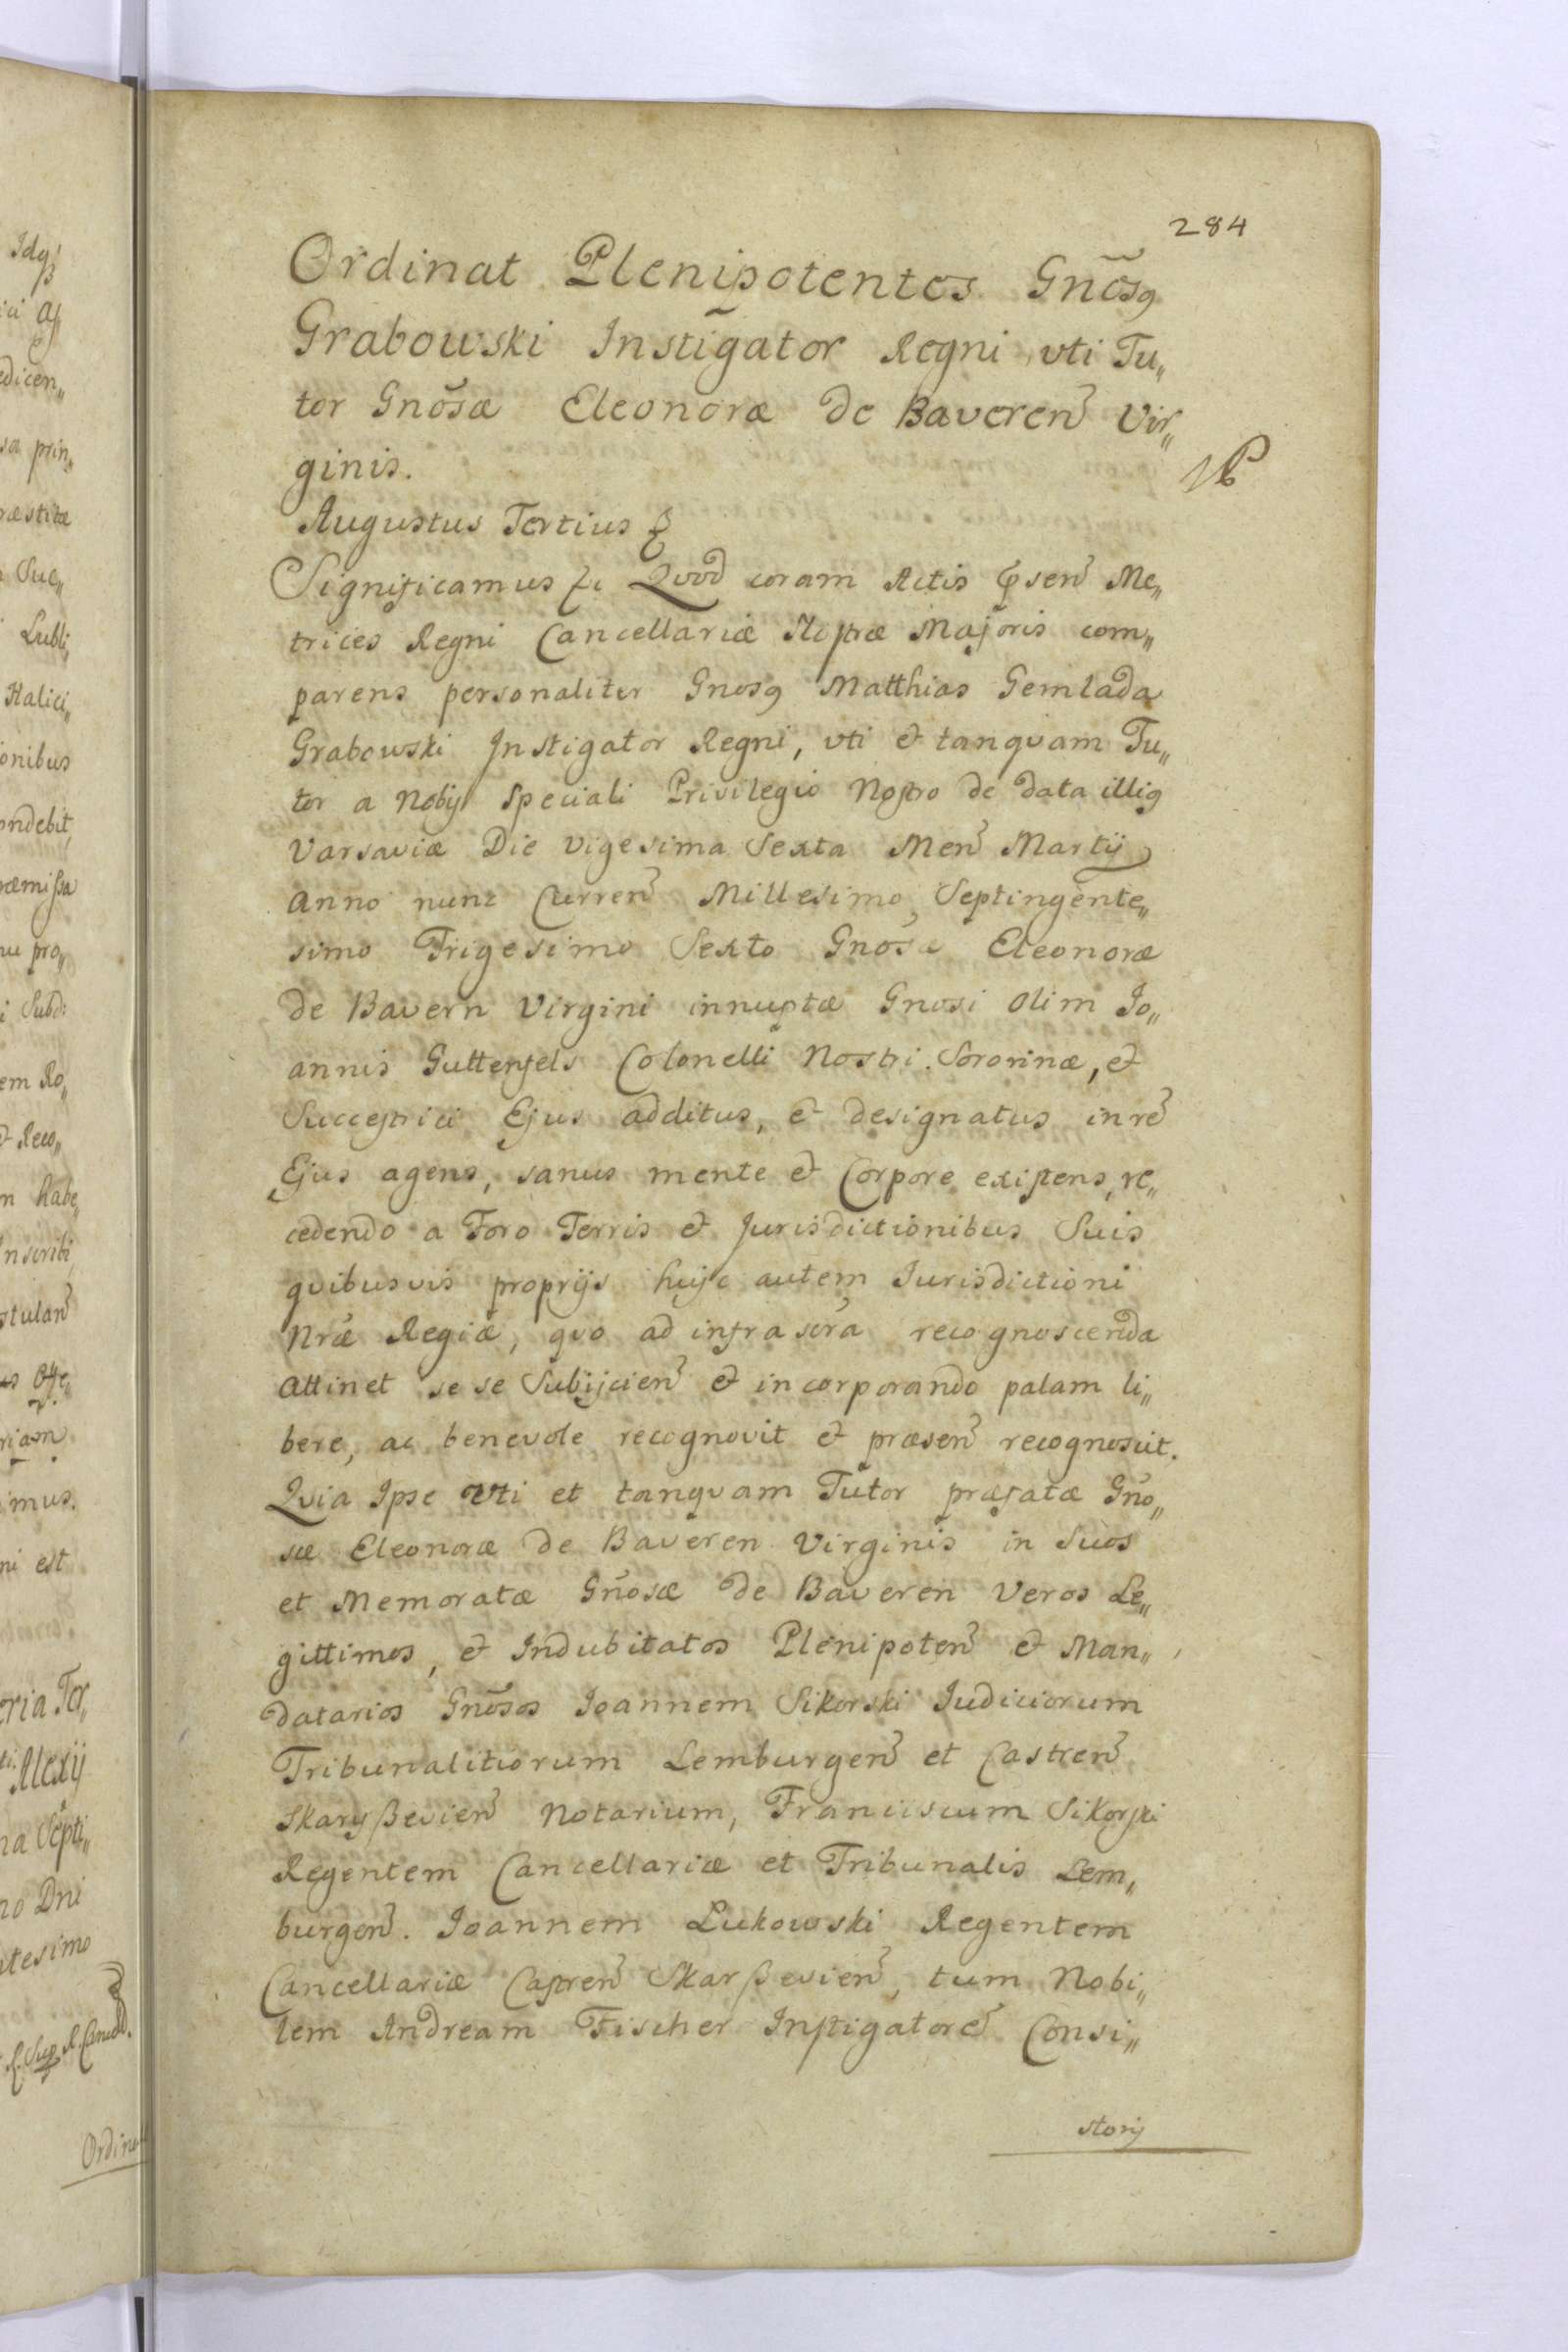 284
Ordinat Plenipotentes Gnosꝯ
Grabowski Instigator Regni uti Tu„
tor Gnosæ Eleonoræ de Baveren Vir„
ginis.
Augustus Tertius
Significamus &c Quod coram Actis pñsen Me„
trices Regni Cancellariæ Nostræ Majoris com„
parens personaliter Gnosꝯ Matthias Gemlada
Grabowski Instigator Regni, uti et tanquam Tu„
tor a Nobis Speciali Privilegio Nostro de data illiꝯ
Varsaviæ Die Vigesima Sexta Men Martij
Anno nunc Curren Millesimo Septingente„
simo Trigesimo Sexto Gnosæ Eleonoræ
de Bavern Virgini innuptæ Gnosi olim Jo„
annis Guttenfels Colonelli Nostri Sororinæ, et
Successrici Ejus additus, et designatus in re
Ejus agens, sanus mente et Corpore existens, re„
cedendo a Foro Terris et Jurisdictionibus Suis
quibusvis proprijs huic autem Jurisdictioni
Nræ Regiæ, quo ad infra scra recognoscenda
attinet se se Subijcien et incorporando palam li„
bere, ac benevole recognovit et præsen recognoscit.
Quia Ipse Uti et tanquam Tutor præfatæ Gno„
sæ Eleonoræ de Baveren Virginis in Suos
et Memoratæ Gnosæ de Baveren Veros Le„
gittimos, et Indubitatos Plenipoten et Man„
datarios Gnosos Joannem Sikorski Judiciorum
Tribunalitiorum Lemburgen et Castren
Skaryßevien Notarium, Franciscum Sikorski
Regentem Cancellariæ et Tribunalis Lem„
burgen. Joannem Lukowski Regentem
Cancellariæ Castren Skarßevien, tum Nobi„
lem Andream Fischer Instigatore Consi„
storij